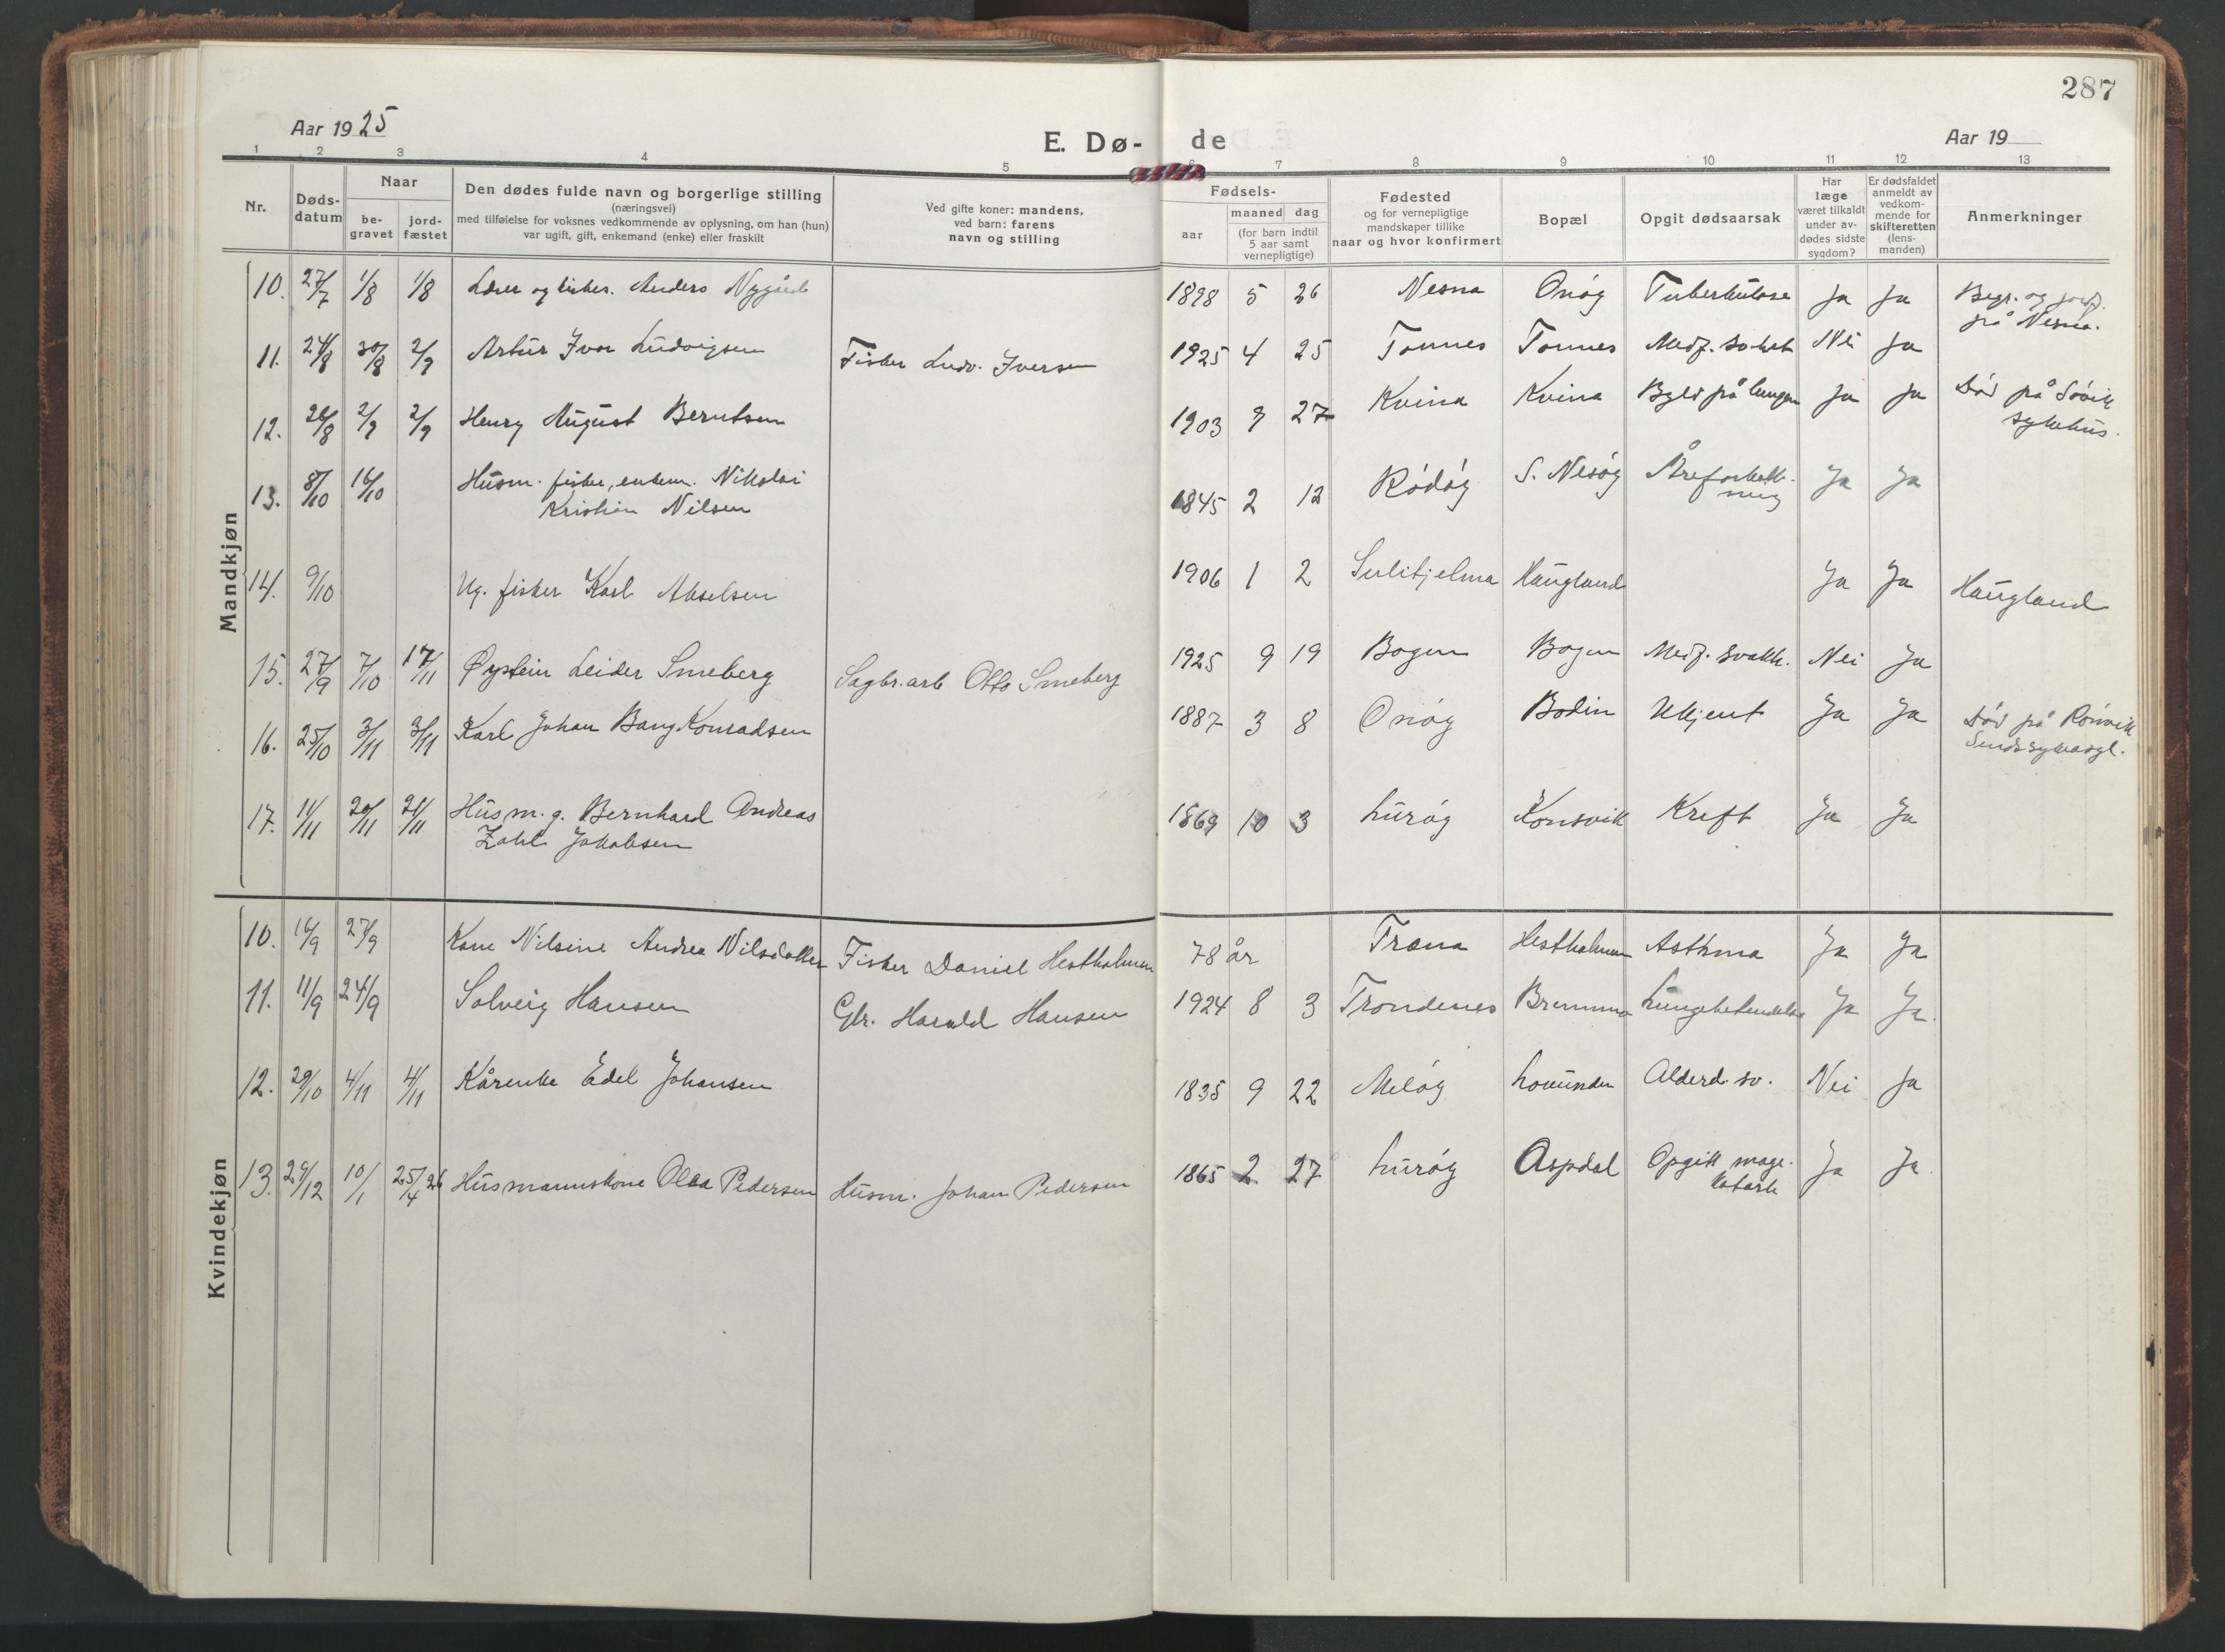 287
Aar 1925 E. Dø- de Aar 19
1 2 3 4 5 7 8 9 10 11 12 13
Nr.
Døds-
datum
Naar
be-
gravet
jord-
fæstet
Den dødes fulde navn og borgerlige stilling
(næringsvei)
med tilføielse for voksnes vedkommende av oplysning, om han (hun)
var ugift, gift, enkemand (enke) eller fraskilt
Ved gifte koner: mandens,
ved barn: farens
navn og stilling
Fødsels-
aar
maaned dag
(for barn indtil
5 aar samt
vernepligtige)
Fødested
og for vernepligtige
mandskaper tillike
naar og hvor konfirmert
Bopæl
Opgit dødsaarsak
Har
læge
været tilkaldt
under av-
dødes sidste
sygdom?
Er dødsfaldet
anmeldt av
vedkom-
mende for
skifteretten
(lens-
manden)
Anmerkninger
Mandkjøn
10. 27/7 1/8 1/8 Lærer og kirkes. Anders Nygård 1898 5 26 Nesna Onøy Tuberkulose Ja Ja Begr. og jordf.
på Nesna.
11. 24/8 30/8 2/9 Artur Ivar Ludvigsen Fisker Ludv. Iversen 1925 4 25 Tonnes Tonnes Medf. svakh. Nei Ja
12. 26/8 2/9 2/9 Henry August Berntsen 1903 9 27 Kvina Kvina Byld på lungen Ja Ja Død på Søvik
sykehus.
13. 8/10 16/10 Husm. fisker, enkem. Nikolai
Kristian Nilsen 1845 2 12 Rødøy S. Nesøy Åreforkalk-
ning Ja Ja
14. 9/10 Ug. fisker Karl Akselsen 1906 1 2 Sulitjelma Haugland Ja Ja Haugland
15. 27/9 7/10 17/11 Øystein Leider Smeberg Sagbr.arb Otto Smeberg 1925 9 19 Bogen Bogen Medf. svakh. Nei Ja
16. 25/10 3/11 3/11 Karl Johan Bang Konradsen 1887 3 8 Onøy Bodin Ukjent Ja Ja Død på Rønvik
Sindssykeasyl.
17. 11/11 20/11 21/11 Husm. g. Bernhard Andreas
Zahl Jakobsen 1869 10 3 Lurøy Konsvik Kreft Ja Ja
Kvindekjøn
10. 16/9 27/9 Kone Nilsine Andrea Nilsdatter Fisker Daniel Hestholmen 78 år Træna Hestholmen Asthma Ja Ja
11. 11/9 24/9 Solveig Hansen Gbr. Harald Hansen 1924 8 3 Trondenes Bremmo Lungebetendelse Ja Ja.
12. 29/10 4/11 4/11 Kårenke Edel Johansen 1835 9 22 Meløy Lovunden Alderd. sv. Nei Ja
13. 29/12 10/1 25/4 26 Husmannskone Olea Pedersen Husm. Johan Pedersen 1865 2 27 Lurøy Aspdal Opgitt mage-
katarh Ja Ja